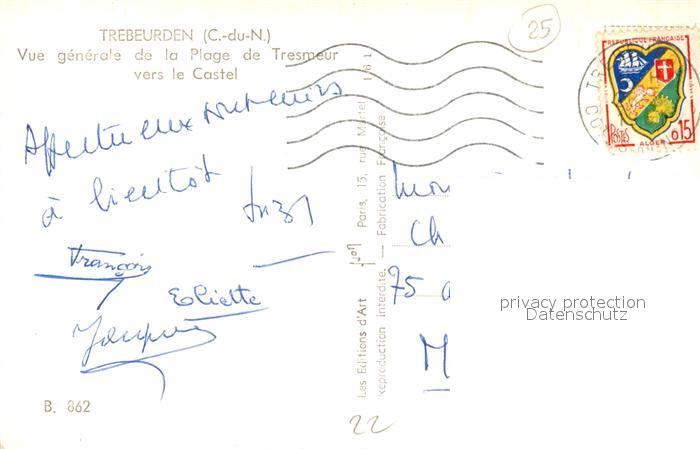 TREBEURDEN (C.-du-N.)
Vue générale de la Plage de Tresmeur
vers le Castel
25
REPUBLIQUE FRANÇAISE
POSTES
ALGER
0,15
Affectueux souvenirs
à bientôt
François
Eliette
Jacques
B. 862
Les Editions d'Art
Paris, 15, rue Martel
Reproduction interdite. — Fabrication Française
Ch
75
M
privacy protection
Datenschutz
22